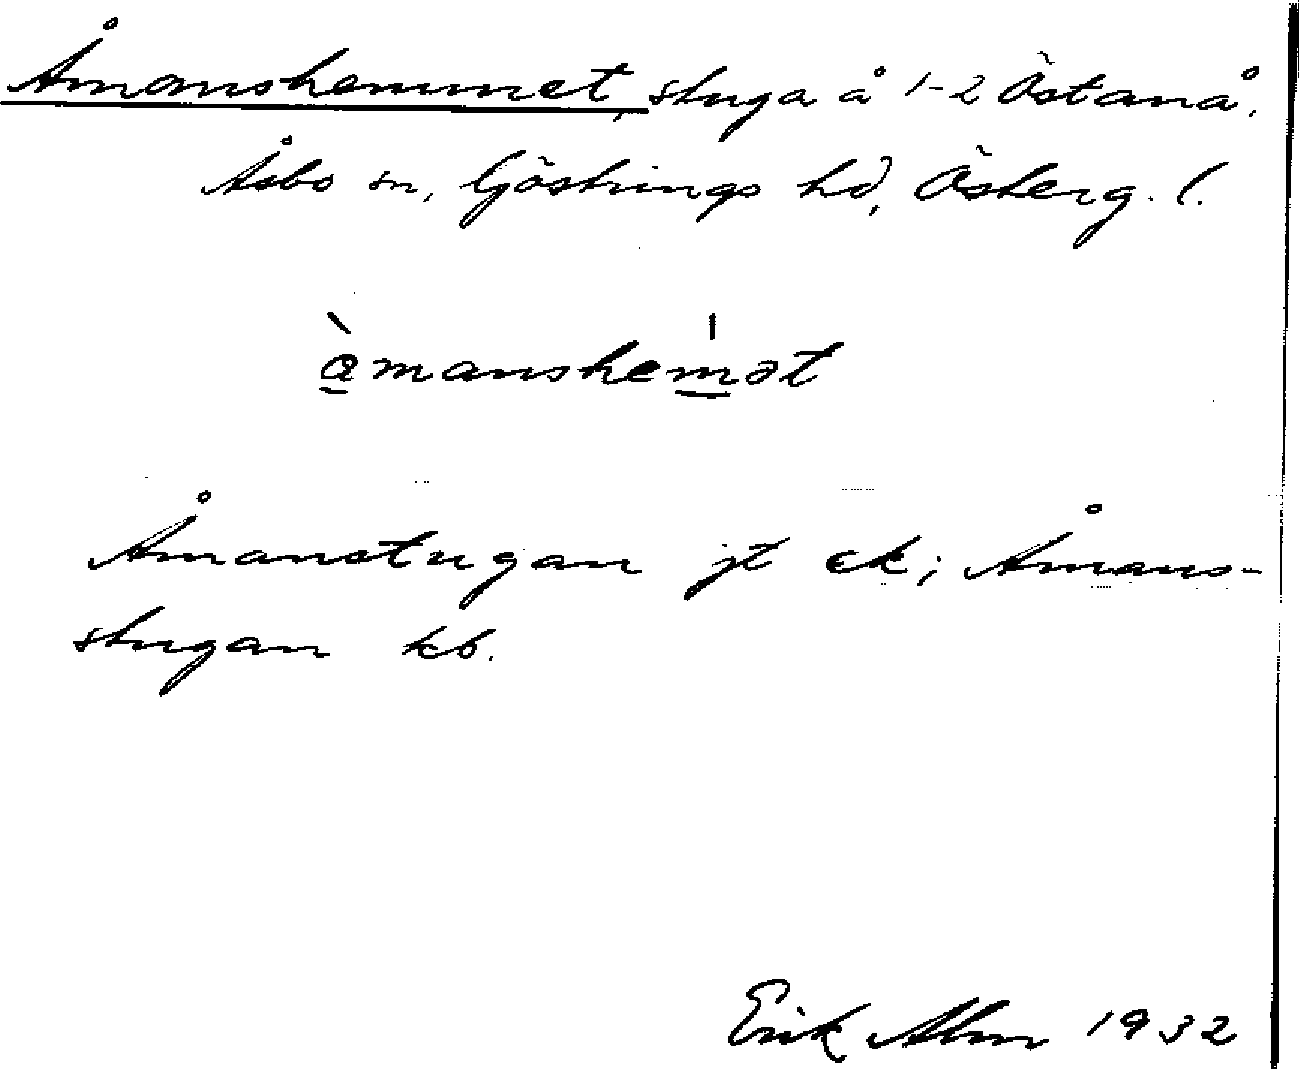 Åmanshemmet, stuga å 1-2 Östanå.
Åsbo sn, Göstrings hd, Österg. l.
àmanshem̍ət
Åmanstugan jt ek; Åmans-
stugan kb.
Erik Alm 1932